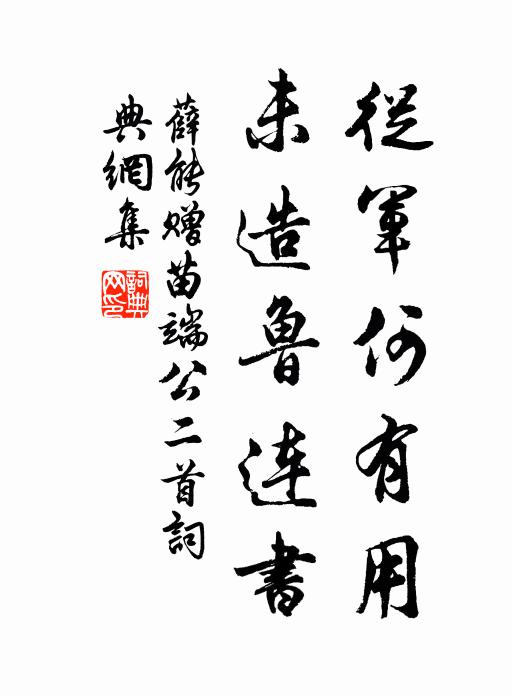 從軍何有用
未造魯連書
薛能贈苗端公二首詞
典網集
詞典網印